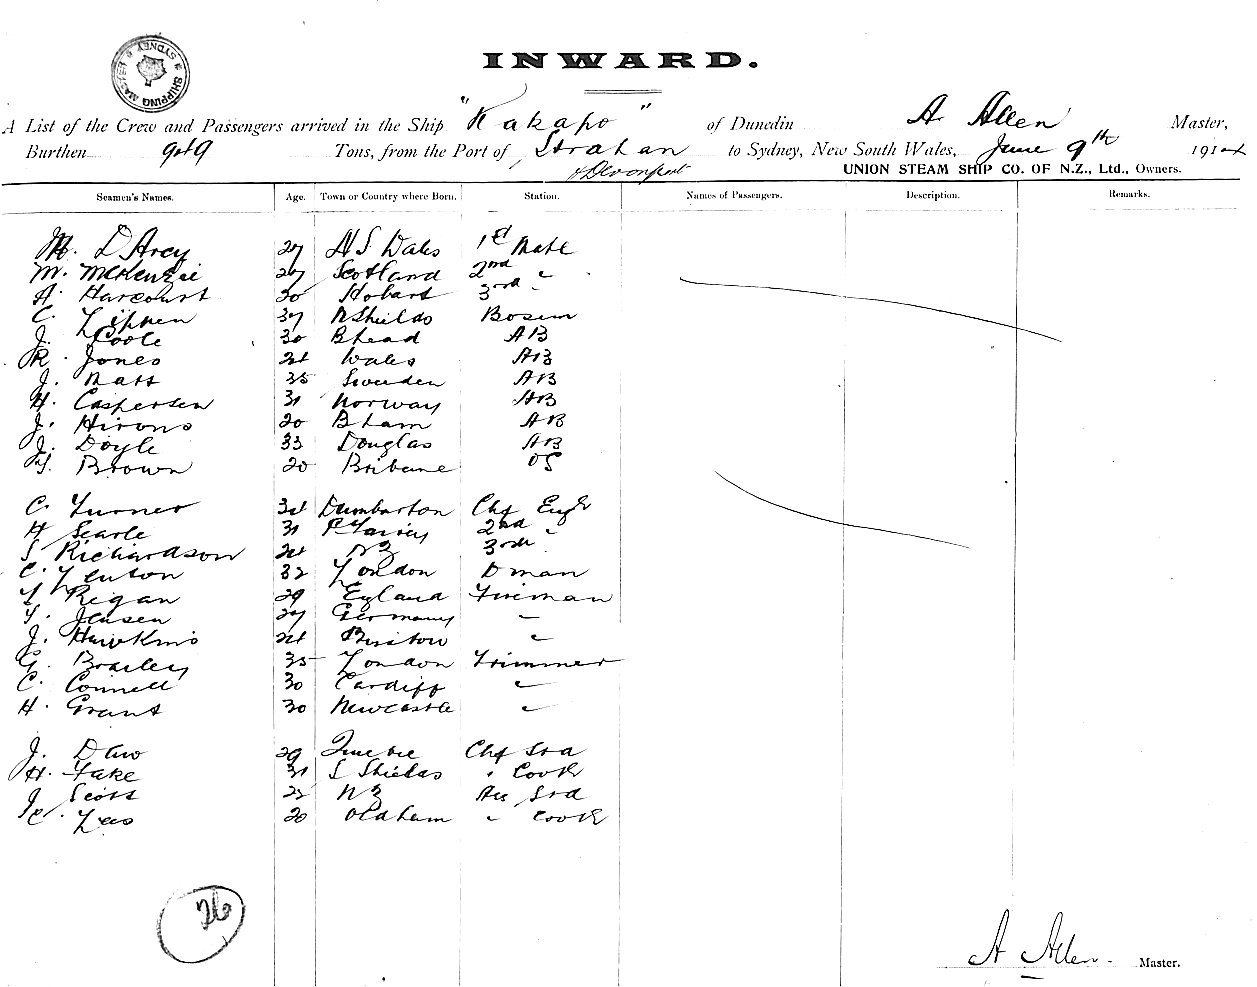 SHIPPING MASTER SYDNEY
INWARD.
A List of the Crew and Passengers arrived in the Ship "Kakapo" of Dunedin A. Allen Master,
Burthen Tons, from the Port of Strahan to Sydney, New South Wales, June 9th 1914
& Devonport UNION STEAM SHIP CO. OF N.Z., Ltd., Owners.
Seamen's Names. Age. Town or Country where Born. Station. Names of Passengers. Description. Remarks.
M. D'Arcy 27 N S Wales 1st Mate
M. McKenzie 27 Scotland 2nd "
A. Harcourt 30 Hobart 3rd "
C. 37 N Shields Bosun
J. Poole 30 B head AB
R. Jones 24 Wales AB
J. Matt 35 Sweden AB
H. Caspersen 31 Norway AB
J. Hirons 20 B ham AB
J. Doyle 33 Douglas AB
Brown 20 Brisbane OS
C. Turner 34 Dumbarton Chf Engr
H Searle 31 2nd "
S Richardson 24 NZ 3rd "
C. Fenton 32 London D man
Regan 29 England Fireman
Jensen 27 Germany "
J. Hawkins 24 "
G. Brailey 35 London Trimmer
C. Connell 30 Cardiff "
H. Grant 30 Newcastle "
J. Daw 29 Chf Std
H. Fake 31 S Shields " Cook
J. Scott 22 NZ Ass Std
C. Lees 20 Oldham " Cook
26
A Allen. Master.